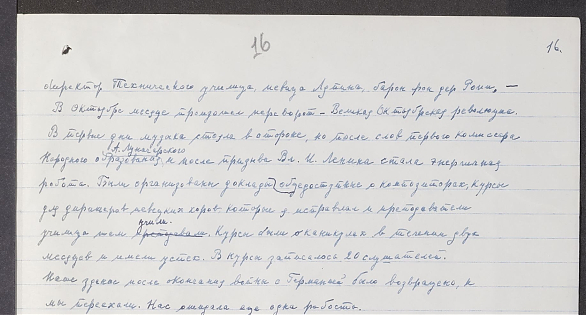 16
16.
директор Технического училища, певица Лутина, барон фон дер Ропп, —
В Октябре месяце произошел переворот – Великая Октябрьская революция.
В первые дни музыка стояла в стороне, но после слов первого комиссара
А. Луначарского
Народного образования, и после призыва Вл. И. Ленина стала энергичная
работа. Были организованы доклады общедоступные о композиторах, курсы
для дирижеров певческих хоров которые я исправлял и преподаватели
учили.
училища тоже преподавали. Курсы были в каникулах в течении двух
месяцев и имели успех. В курсы записалось 20 слушателей.
Наше здание после окончания войны с Германией было возвращено, и
мы переехали. Нас ожидала еще одна радость.